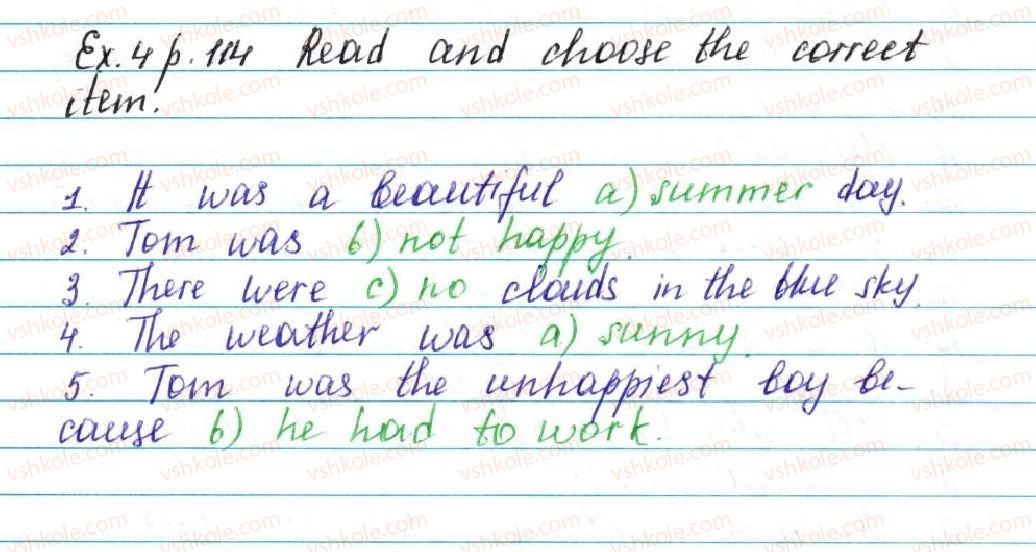 Ex. 4 p. 114 Read and choose the correct
item.
1. It was a beautiful a) summer day.
2. Tom was b) not happy.
3. There were c) no clouds in the blue sky.
4. The weather was a) sunny.
5. Tom was the unhappiest boy be-
cause b) he had to work.